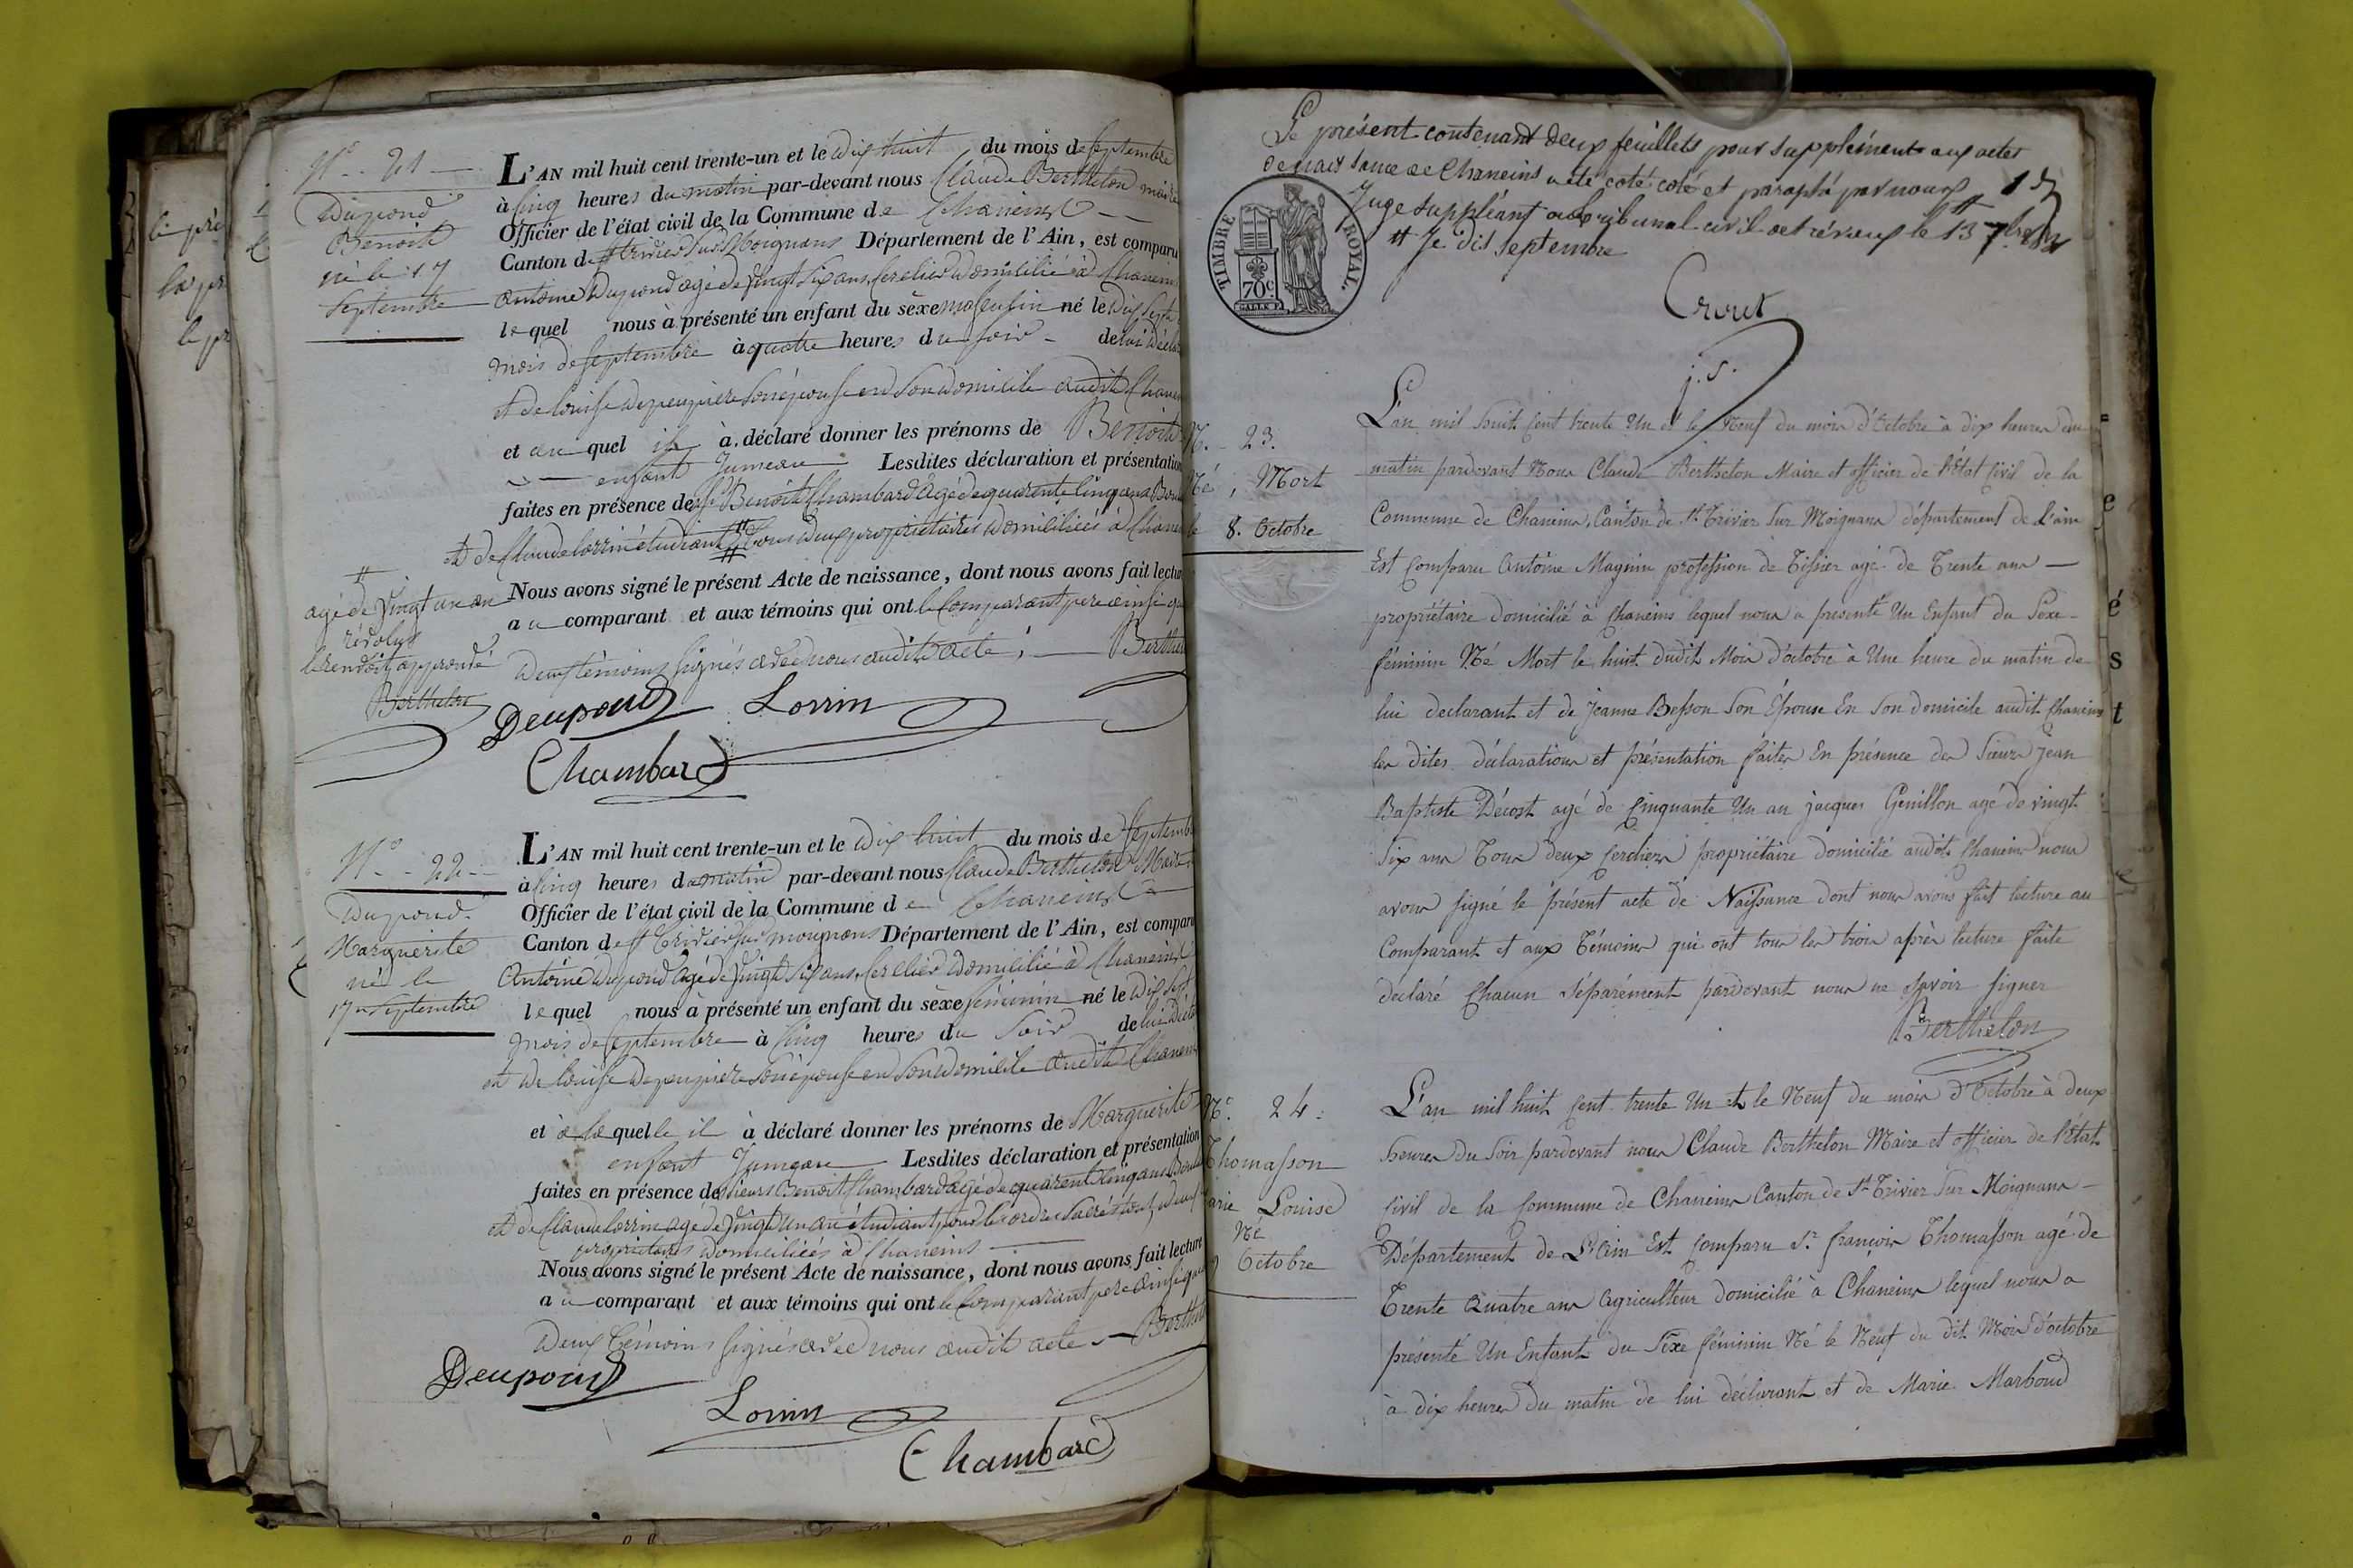 N.° 21
Dupond
Benoit
né le 17
Septembre
L'AN mil huit cent trente-un et le dix huit du mois de Septembre
à cinq heures du matin par-devant nous Claude Berthelon maire
Officier de l'état civil de la Commune de Chaneins
Canton de St trivier sur Moignans Département de l'Ain, est comparu
antoine Dupond agé de vingt six ans cerclier domicilié à Chaneins
lequel nous à présenté un enfant du sèxe masculin né le dix sept
mois de septembre à quatre heures du soir de lui déclar
et de louise depeupiere son épouse en son domicile audit Chanei
et au quel il à déclaré donner les prénoms de Benoit
enfant Jumeau Lesdites déclaration et présentation
faites en présence de Benoit Chambard agé de quarente cinq ans
et de Claude lorrin étudiant # tous deux propriétaires domiciliés à Chanei
#
agé de vingt un an
révolus
le renvoit approuvé
Berthelon
Nous avons signé le présent Acte de naissance, dont nous avons fait lectu
au comparant et aux témoins qui ont le Comparant pere ainsi que
deux témoins signés avec nous audit acte ; Berthe
Deupond Lorrin
Chambard
N.° 22
Dupond
Marguerite
né le
17 Septembre
L'AN mil huit cent trente-un et le dix huit du mois de Septemb
à cinq heures du matin par-devant nous Claude Berthelon Maire
Officier de l'état civil de la Commune de Chaneins
Canton de St trivier sur moignans Département de l'Ain, est comparu
Antoine dupond agé de vingt six ans cerclier domicilié à Chaneins
lequel nous à présenté un enfant du sèxe féminin né le dix sept
mois de septembre à cinq heures du soir de lui décla
et de louise depeupiere son épouse en son domicile audit Chanein
et à laquelle il à déclaré donner les prénoms de Marguerite
enfant Jumeau Lesdites déclaration et présentation
faites en présence de sieurs Benoit Chambard agé de quarente cinq ans
et de Claude lorrin agé de vingt un an étudiant pour les ordres sacrés tout deux
propriétaires domiciliés à Chaneins
Nous avons signé le présent Acte de naissance, dont nous avons fait lecture
au comparant et aux témoins qui ont le Comparant pere ainsi que
deux témoins signés avec nous audit acte Berthel
Deupond
Lorrin
Chambard
Le présent contenant deux feuillets pour supplément aux actes
de naissance de Chaneins a été coté et paraphé par nous
Juge suppléant au tribunal civil de trévoux le 13 7bre
# Je dis Septembre
TIMBRE ROYAL.
70 c.
Crozet
j. s.
N. 23.
Né, Mort
le
8. Octobre
L'an mil huit cent trente Un et le Neuf du mois d'Octobre à dix heures du
matin pardevant Nous Claude Berthelon Maire et officier de l'État Civil de la
Commune de Chaneins, Canton de St Trivier sur Moignans département de L'ain
Est Comparu Antoine Magnin profession de Tissier agé de Trente ans
propriétaire domicilié à Chaneins lequel nous a présenté Un Enfant du Sexe
féminin Né Mort le huit dudit Mois d'octobre à Une heure du matin de
lui declarant et de Jeanne Besson Son Épouse En Son domicile audit Chaneins
les dites déclarations et présentation faites En présence des Sieurs Jean
Baptiste Décost agé de Cinquante Un an jacques Genillon agé de vingt
Six ans Tous deux Cercliers propriétaire domicilié audit Chaneins nous
avons signé le présent acte de Naissance dont nous avons fait lecture au
Comparant et aux Témoins qui ont tous les trois après lecture faite
declaré Chacun Séparément pardevant nous ne Savoir signer
Berthelon
N.° 24.
Thomasson
arie Louise
Né
9 Octobre
L'an mil huit cent trente Un et le Neuf du mois d'Octobre à deux
heures du Soir pardevant nous Claude Berthelon Maire et officier de l'État
Civil de la Commune de Chaneins Canton de St Trivier Sur Moignans
Département de L'Ain Est Comparu Sr françois Thomasson agé de
Trente Quatre ans agriculteur domicilié à Chaneins lequel nous a
présenté Un Enfant du Sexe féminin Né le Neuf du dit Mois d'octobre
à dix heures du matin de lui déclarant et de Marie Marboud
é
s
t